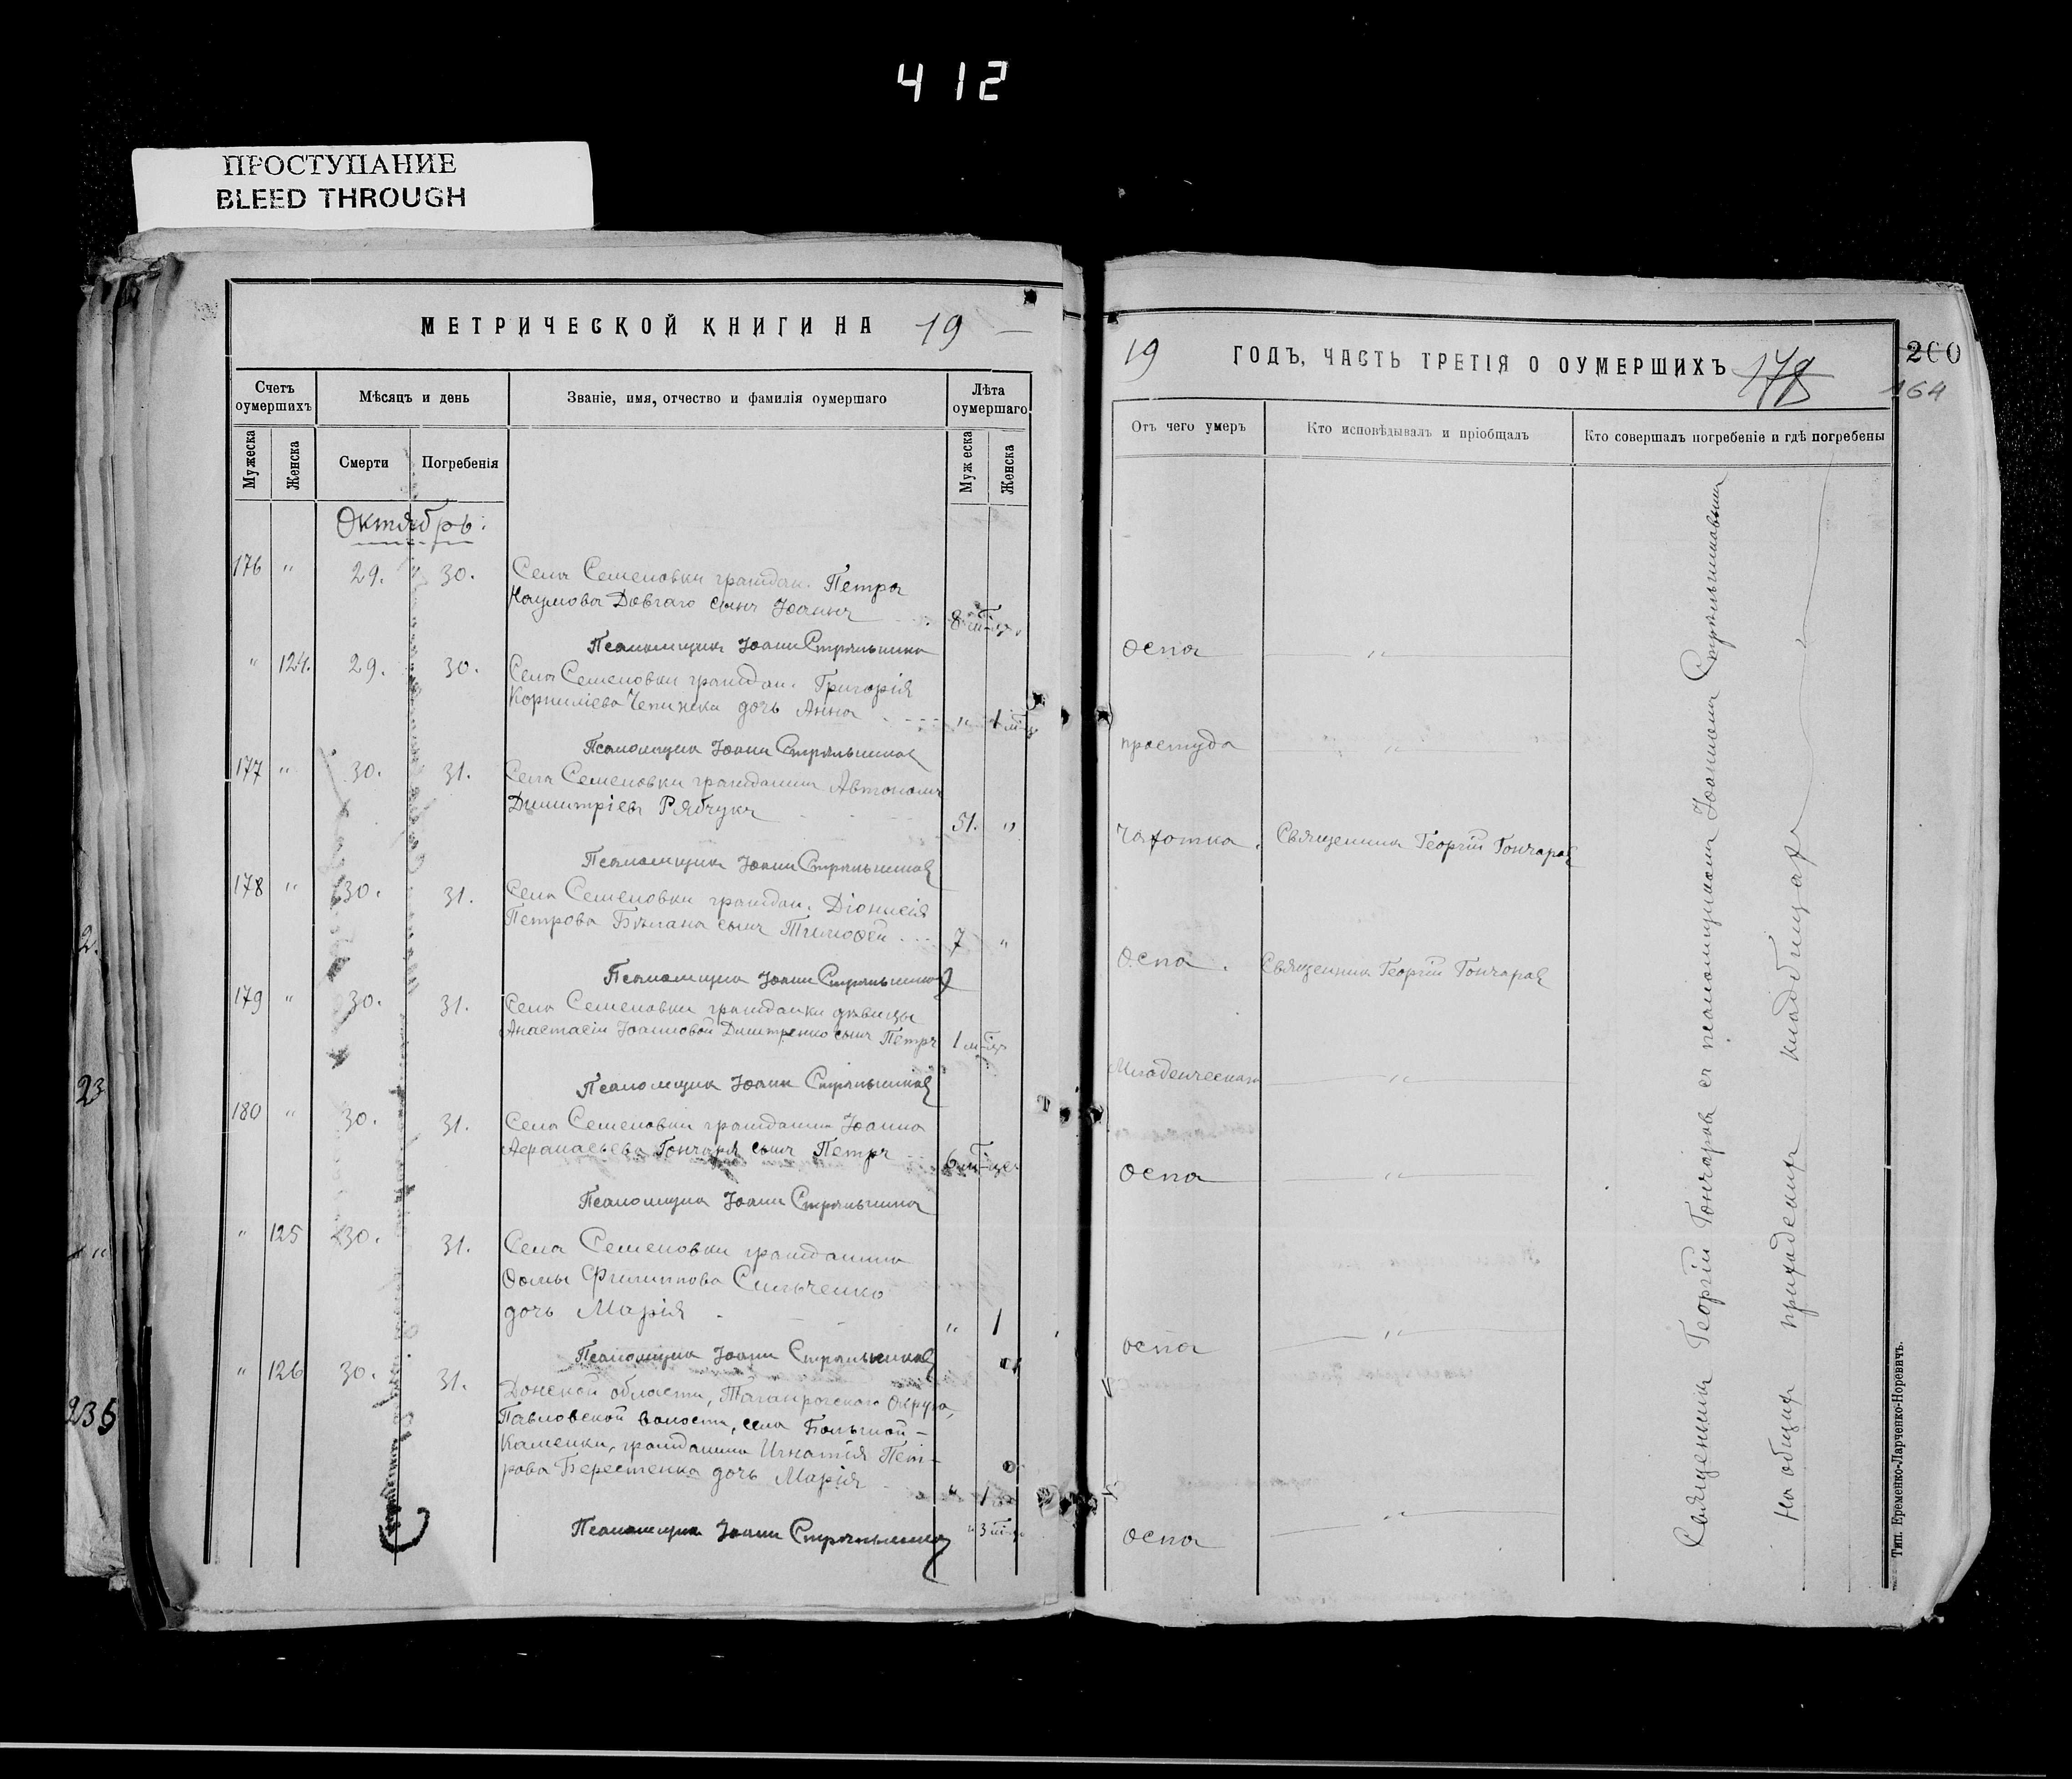 412
ПРОСТУПАНИЕ
BLEED THROUGH
МЕТРИЧЕСКОЙ КНИГИ НА 19
Счетъ оумершихъ
Мѣсяцъ и день
Званіе, имя, отчество и фамилія оумершаго
Лѣта оумершаго
Мужеска
Женска
Смерти
Погребенія
Мужеска
Женска
Октябрь.
176 " 29. 30. Села Семеновки граждан. Петра
Наумова Довгаго сынъ Іоаннъ 8 м-ц.
Псаломщикъ Іоаннъ Стрѣльниковъ
" 124. 29. 30. Села Семеновки граждан. Григорія
Корниліева дочь Анна " 1 м-ц
Псаломщикъ Іоаннъ Стрѣльниковъ
177 " 30. 31. Села Семеновки гражданинъ Автономъ
Димитріевъ Рябчукъ 51. "
Псаломщикъ Іоаннъ Стрѣльниковъ
178 " 30. 31. Села Семеновки граждан. Діонисія
Петрова Бѣлана сынъ Тимоѳей 7 "
Псаломщикъ Іоаннъ Стрѣльниковъ
179 " 30. 31. Села Семеновки гражданки дѣвицы
Анастасіи Іоанновой Дмитренко сынъ Петръ 1 м-ц
Псаломщикъ Іоаннъ Стрѣльниковъ
180 " 30. 31. Села Семеновки гражданина Іоанна
Аѳанасьева Гончаря сынъ Петръ 6 м-цев
Псаломщикъ Іоаннъ Стрѣльниковъ
" 125 30. 31. Села Семеновки гражданина
Ѳомы Филиппова Сильченко
дочь Марія " 1
Псаломщикъ Іоаннъ Стрѣльниковъ
" 126 30. 31. Донской области, Таганрогского Округа,
Павловской волости, села Большой-
Каменки, гражданина Игнатія Пет-
рова Берестенка дочь Марія " 1
" 3 м-ц
Псаломщикъ Іоаннъ Стрѣльниковъ
19 ГОДЪ, ЧАСТЬ ТРЕТІЯ О ОУМЕРШИХЪ 178
200
164
Отъ чего умеръ
Кто исповѣдывалъ и пріобщалъ
Кто совершалъ погребеніе и гдѣ погребены
оспа "
простуда "
чахотка. Священникъ Георгій Гончаровъ
Оспа. Священникъ Георгій Гончаровъ
Младенческая "
оспа "
оспа "
оспа "
Священникъ Георгій Гончаровъ съ псаломщикомъ Іоанномъ Стрѣльниковымъ
На общемъ приходскомъ кладбищѣ
Тип. Еременко-Ларченко-Норевичъ.
2.
23
"
235